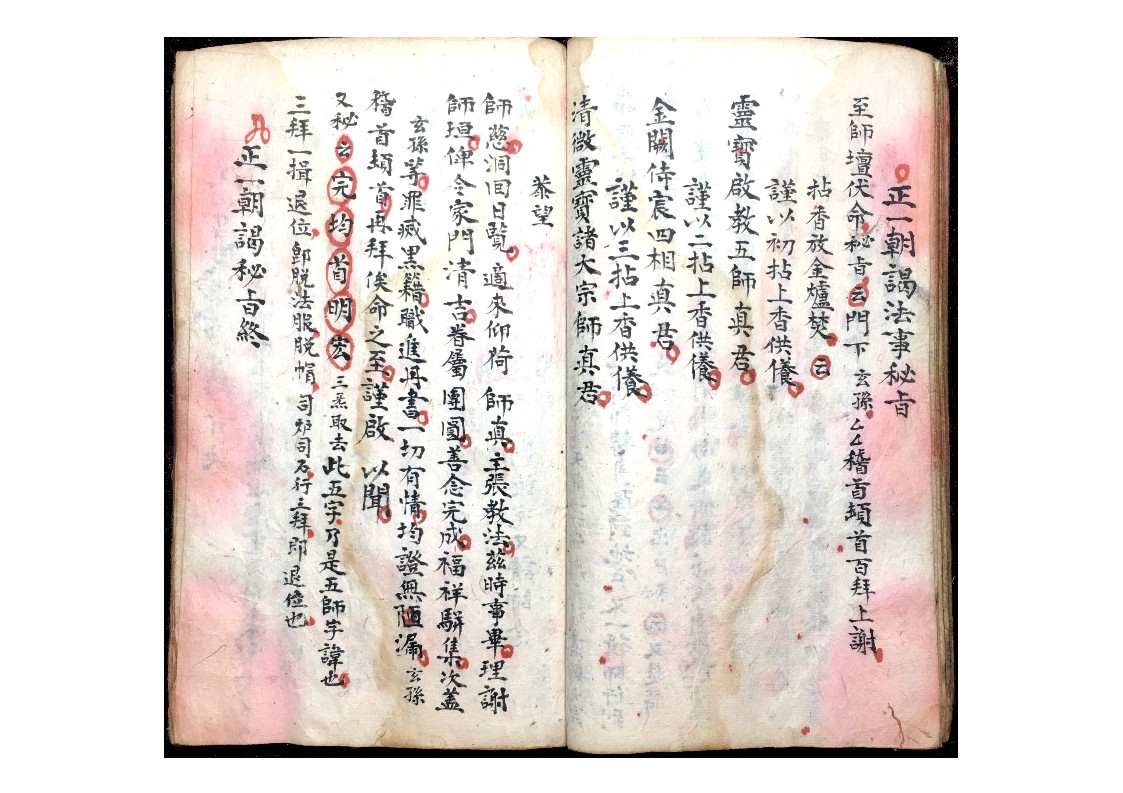 正一朝謁法事秘旨
至師壇伏命秘旨云門下玄孫厶厶稽首頓首百拜上謝
拈香放金爐焚云
謹以初拈上香供養
靈寳啟教五師真君
謹以二拈上香供養
金闕侍宸四相真君
謹以三拈上香供養
清微靈寳諸大宗師真君
恭望
師慈洞回日覽適來仰荷師真主張教法茲時事畢理謝
師垣俾令家門清吉眷屬團圓善念完成福祥駢集次蓋
玄孫等罪滅黑籍職進丹書一切有情均證無陋漏玄孫
稽首頓首再拜俟命之至謹啟以聞
又秘云完均首明宏三炁取去此五字乃是五師字諱也
三拜一揖退位卸脱法服脱帽司炉司石行三拜即退位也
正一朝謁秘旨終